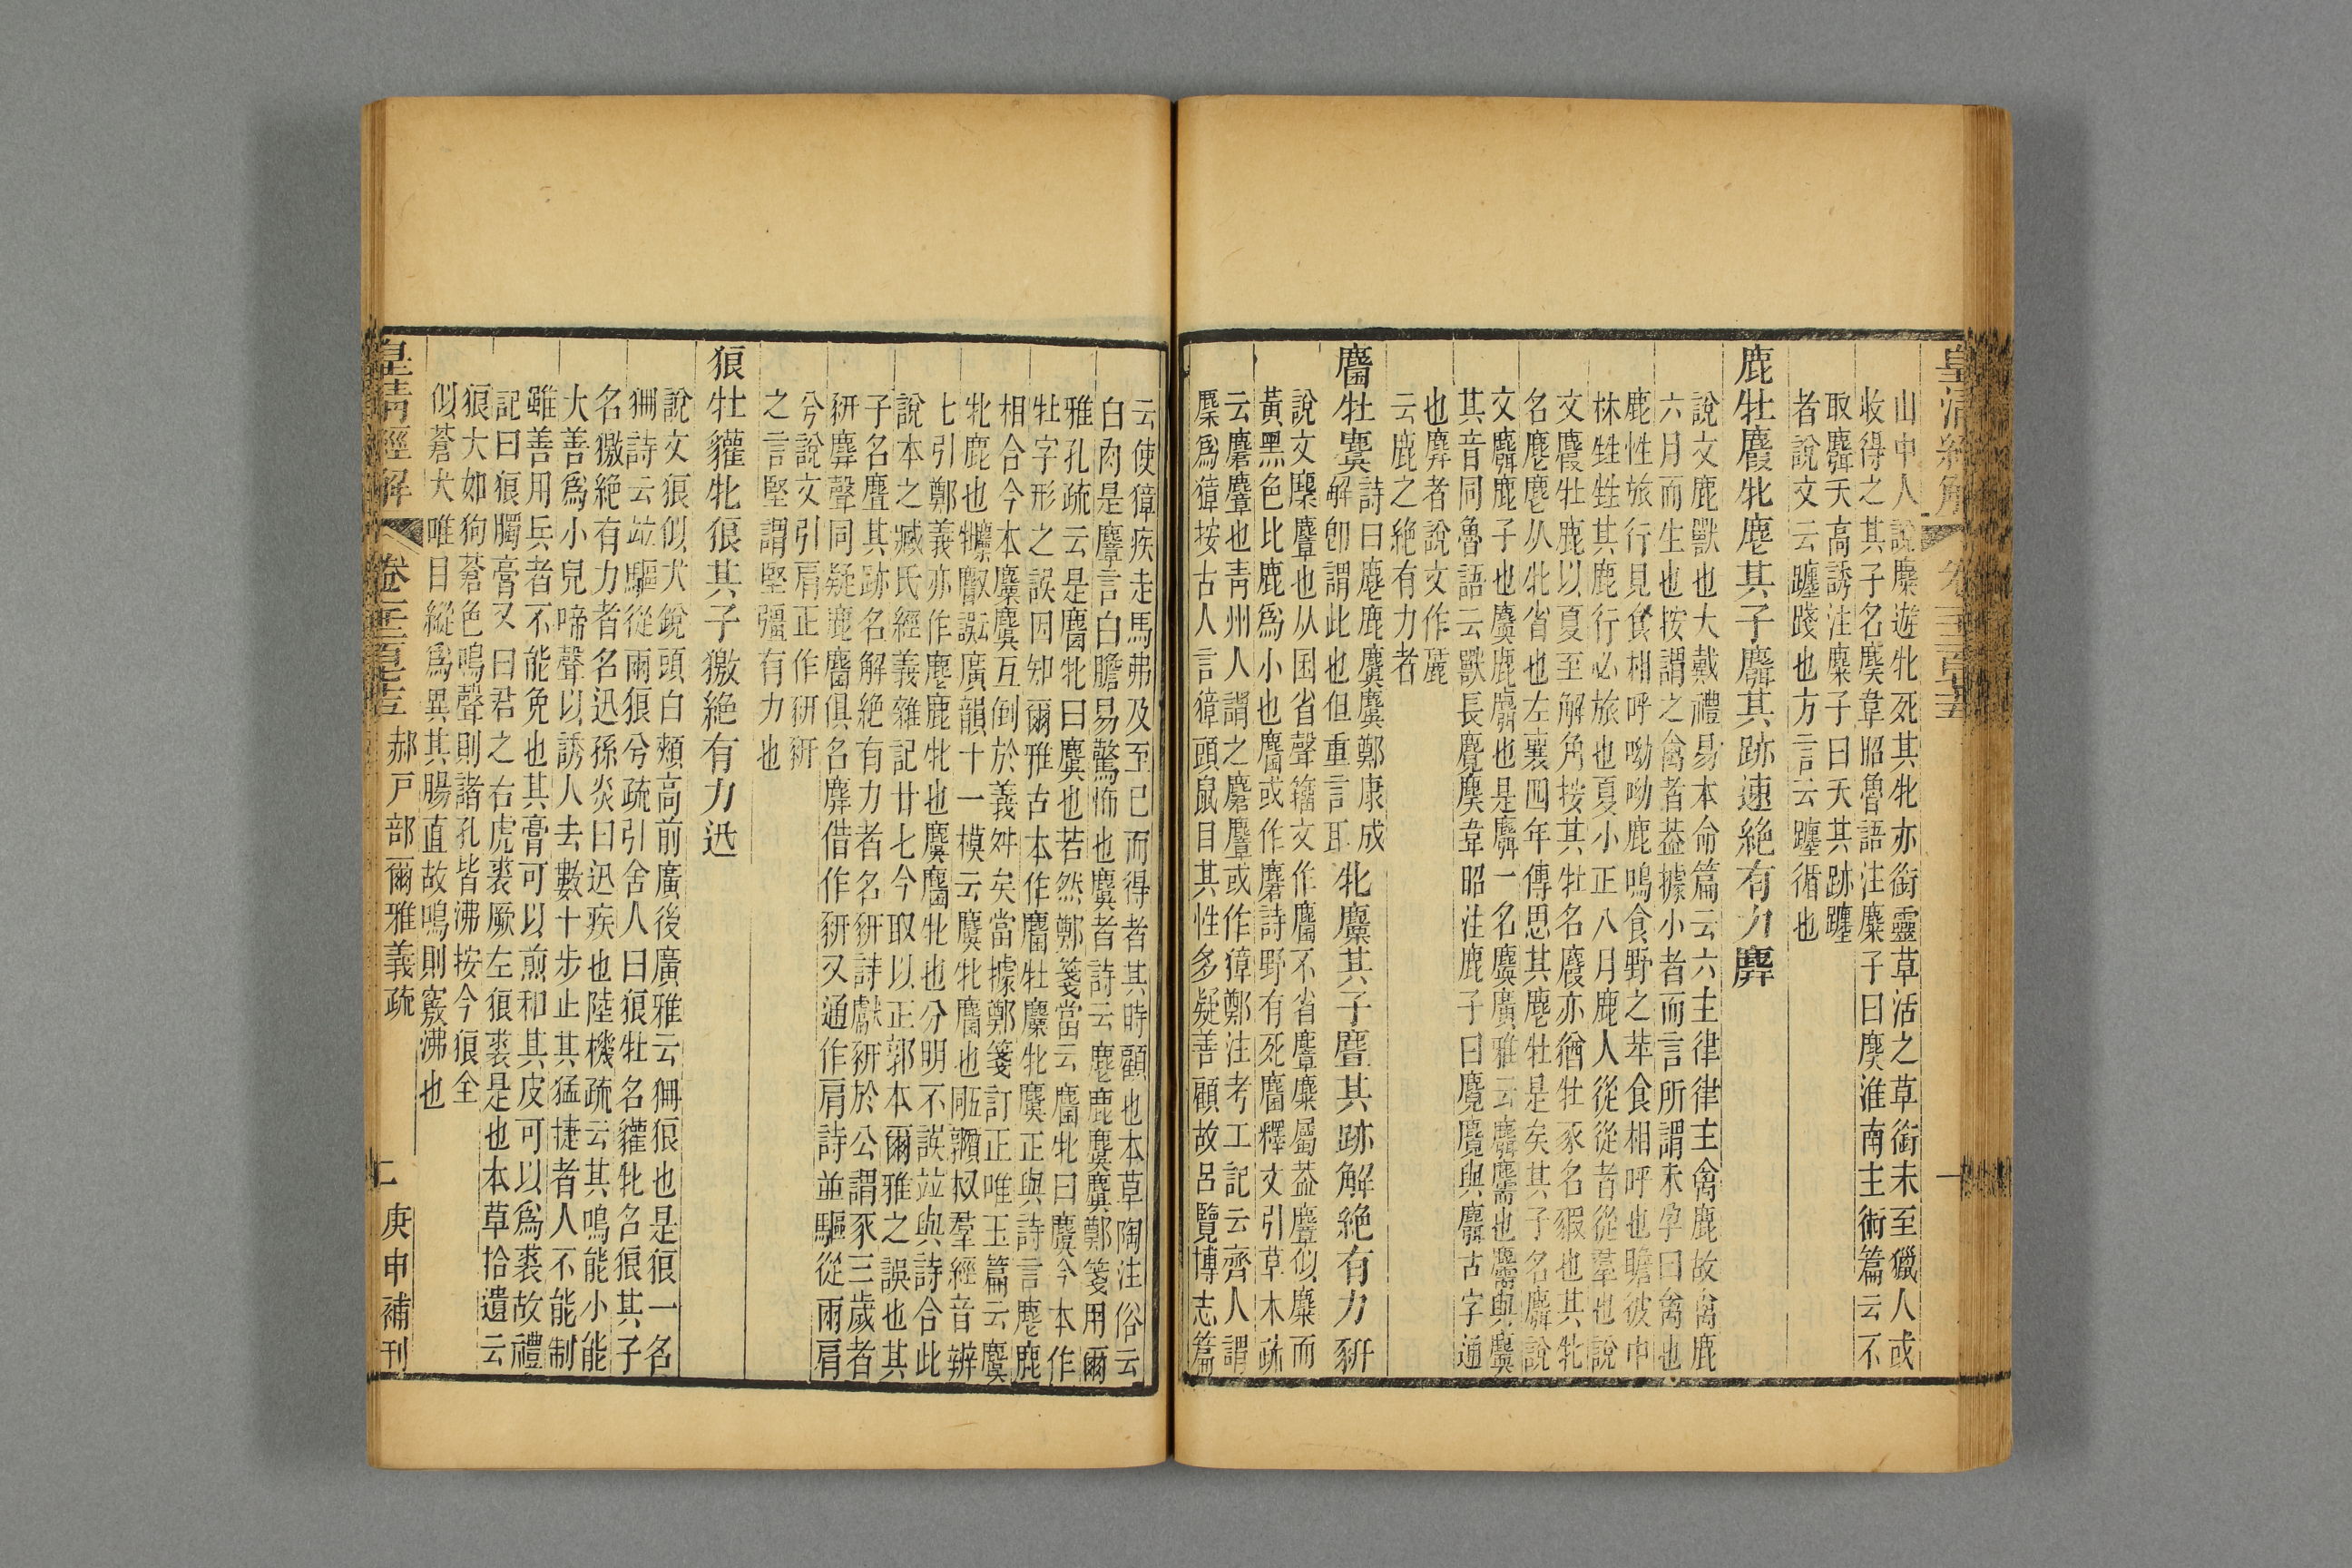 山中人說麋遊牝死其牝亦銜靈草活之草銜未至獵人或
收得之其子名麌韋昭魯語注麋子曰麌淮南主術篇云不
取麛夭高誘注麋子曰夭其跡躔
者說文云躔踐也方言云躔循也
鹿牡麚牝麀其子麛其跡速絕有力麉
說文鹿獸也大戴禮易本命篇云六主律律主禽鹿故禽鹿
六月而生也按謂之禽者葢據小者而言所謂未孕曰禽也
鹿性旅行見食相呼呦呦鹿鳴食野之苹食相呼也瞻彼中
林甡甡其鹿行必旅也夏小正八月鹿人從從者從羣也說
文麚牡鹿以夏至解角按其牡名麚亦猶牡豕名豭也其牝
名麀麀从牝省也左襄四年傳思其麀牡是矣其子名麛說
文麛鹿子也麌鹿麛也是麛一名麌廣雅云麛麢也麢與麌
其音同魯語云獸長麑麌韋昭注鹿子曰麑麑與麛古字通
也麉者說文作麗
云鹿之絕有力者
麕牡麌詩曰麀鹿麌麌鄭康成解卽謂此也但重言耳牝麜其子麆其跡解絕有力豜
說文麇麞也从囷省聲籒文作麕不省麞麋屬葢麞似麋而
黃黑色比鹿爲小也麕或作麏詩野有死麕釋文引草木疏
云麏麞也靑州人謂之麏麞或作獐鄭注考工記云齊人謂
麇爲獐按古人言獐頭鼠目其性多疑善顧故呂覽博志篇
云使獐疾走馬弗及至已而得者其時顧也本草陶注俗云
白肉是麞言白膽易驚怖也麌者詩云麀鹿麌麌鄭箋用爾
雅孔疏云是麕牝曰麌也若然鄭箋當云麕牝曰麌今本作
牡字形之誤因知爾雅古本作麕牡麜牝麌正與詩言麀鹿
相合今本麌麜互倒於義舛矣當據鄭箋訂正唯玉篇云麌
牝鹿也廣韻十一模云麌牝麕也羣經音辨
七引鄭義亦作麀鹿牝也麌麕牝也分明不誤竝與詩合此
說本之臧氏經義雜記廿七今取以正郭本爾雅之誤也其
子名麆其跡名解絕有力者名豜詩獻豜於公謂豕三歲者
豜麉聲同疑鹿麕俱名麉借作豜又通作肩詩並驅從兩肩
兮說文引肩正作豜豜
之言堅謂堅彊有力也
狼牡貛牝狼其子獥絕有力迅
說文狼似犬銳頭白頰高前廣後廣雅云狼也是狼一名
詩云竝驅從兩狼兮疏引舍人曰狼牡名貛牝名狼其子
名獥絕有力者名迅孫炎曰迅疾也陸機疏云其鳴能小能
大善爲小兒啼聲以誘人去數十步止其猛捷者人不能制
雖善用兵者不能免也其膏可以煎和其皮可以爲裘故禮
記曰狼臅膏又曰君之右虎裘厥左狼裘是也本草拾遺云
狼大如狗蒼色鳴聲則諸孔皆沸按今狼全
似蒼犬唯目縱爲異其腸直故鳴則竅沸也
皇清經解 郝戶部爾雅義疏 二 庚申補刊